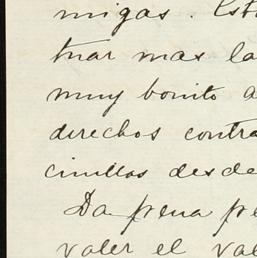 migas. Est
tuar mas la
muy bonito a
derechos contra
cinillas desde
Da pena pe
valer el val